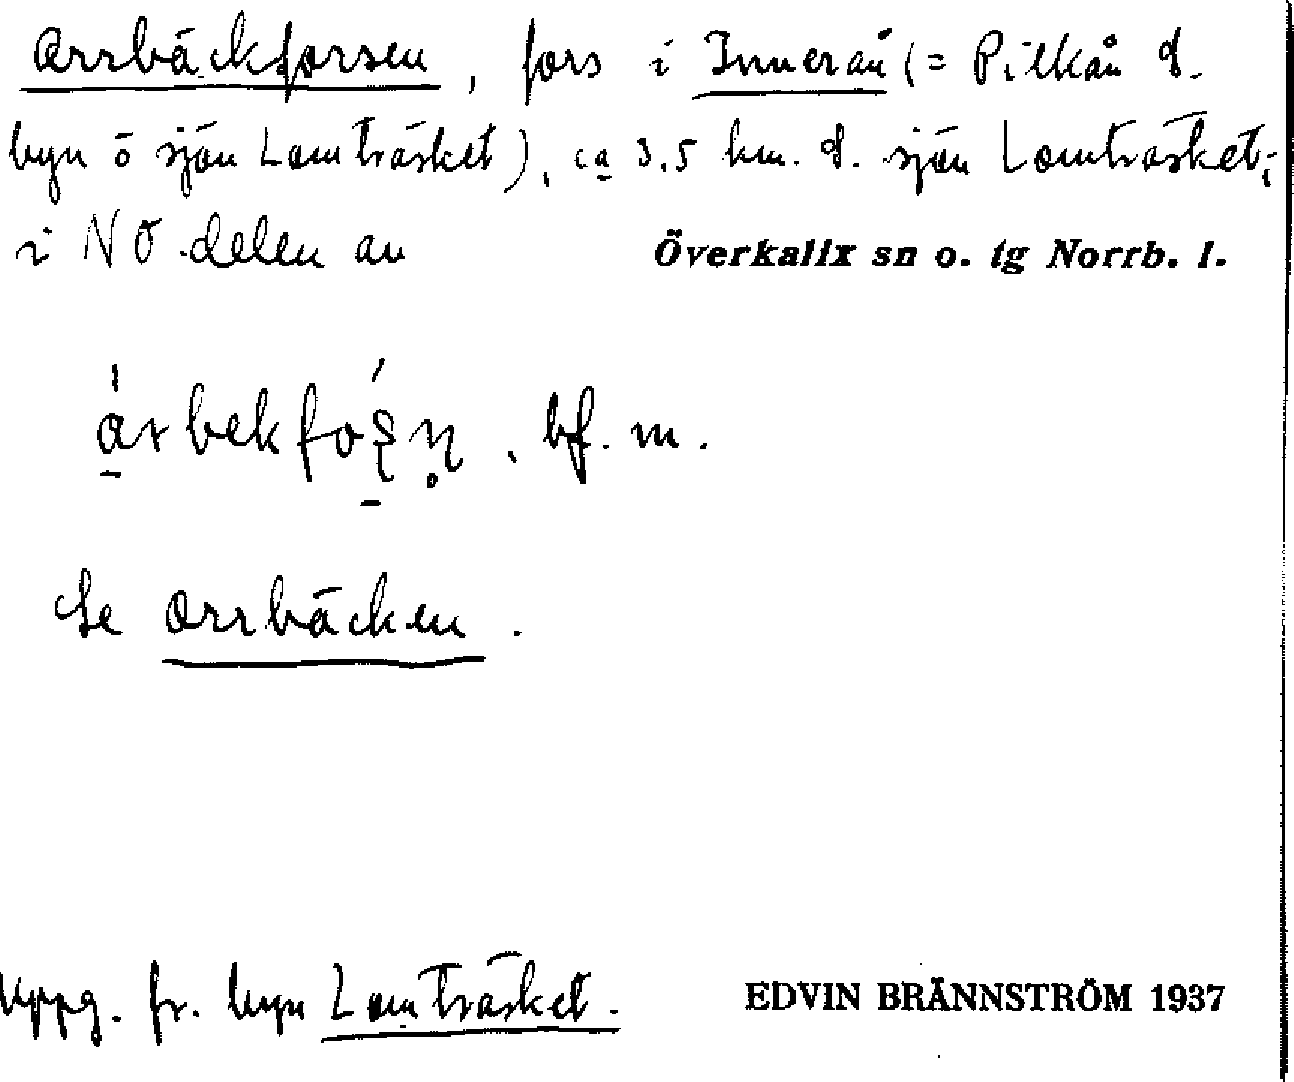 Orrbäckforsen, fors i Innerån (= Pilkån
byn o sjön Lomträsket), ca 3,5 km. sjön Lomträsket;
i NO delen av Överkalix sn o. tg Norrb. l.
bf. m.
Se Orrbäcken.
Uppg. fr. byn Lomträsket. EDVIN BRÄNNSTRÖM 1937